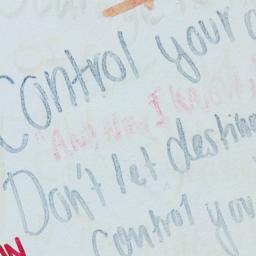 Control your
"AND NOW I KNOW
Don't let
control you
IN